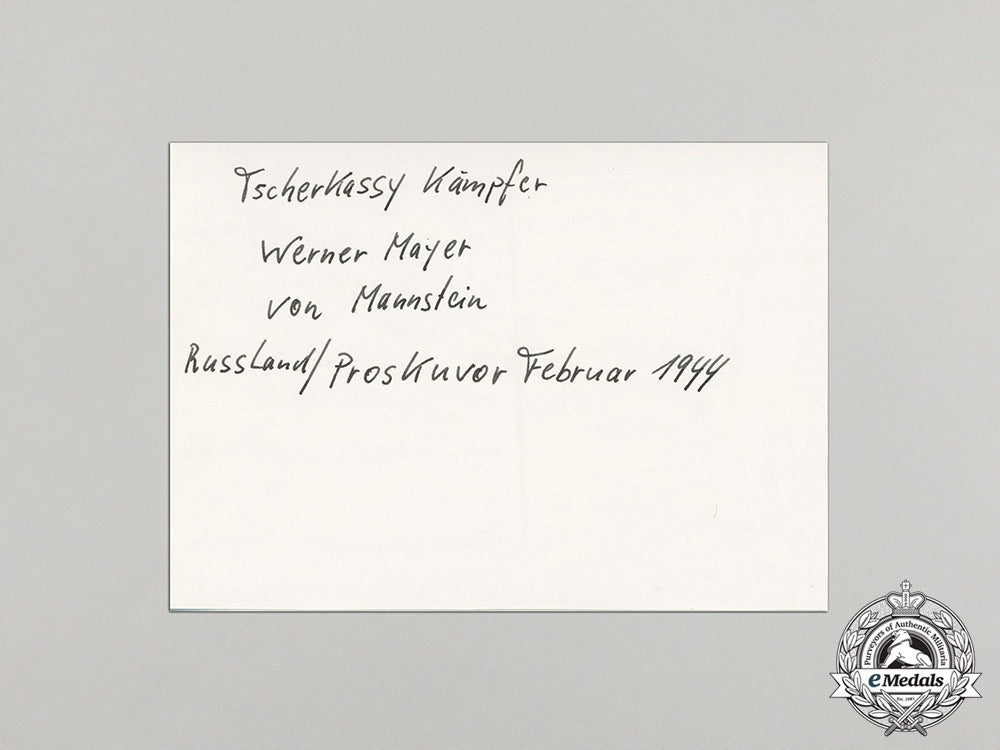 Tscherkassy Kämpfer
Werner Mayer
von Mannstein
Russland/Proskuvor Februar 1944
Purveyors of Authentic Militaria
eMedals
Est. 1985